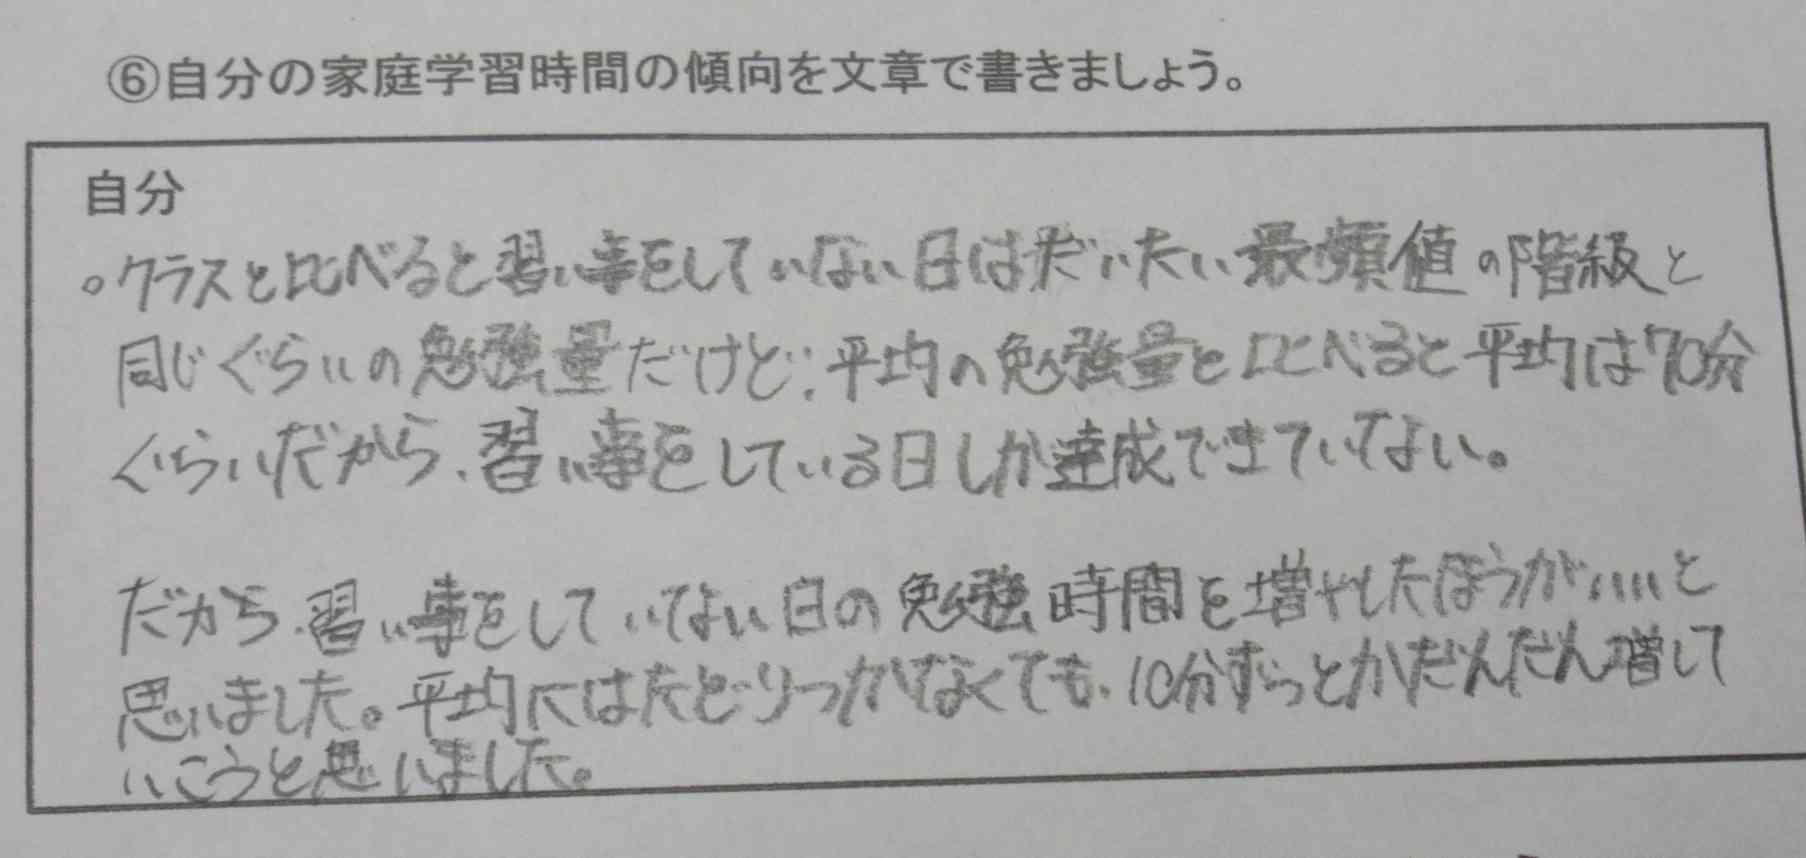 ⑥自分の家庭学習時間の傾向を文章で書きましょう。
自分
。クラスと比べると習い事をしていない日はだいたい最頻値の階級と
同じぐらいの勉強量だけど、平均の勉強量と比べると平均は70分
くらいだから、習い事をしている日しか達成できていない。
だから、習い事をしていない日の勉強時間を増やしたほうがいいと
思いました。平均にはたどりつかなくても、10分ずつとかだんだん増して
いこうと思いました。